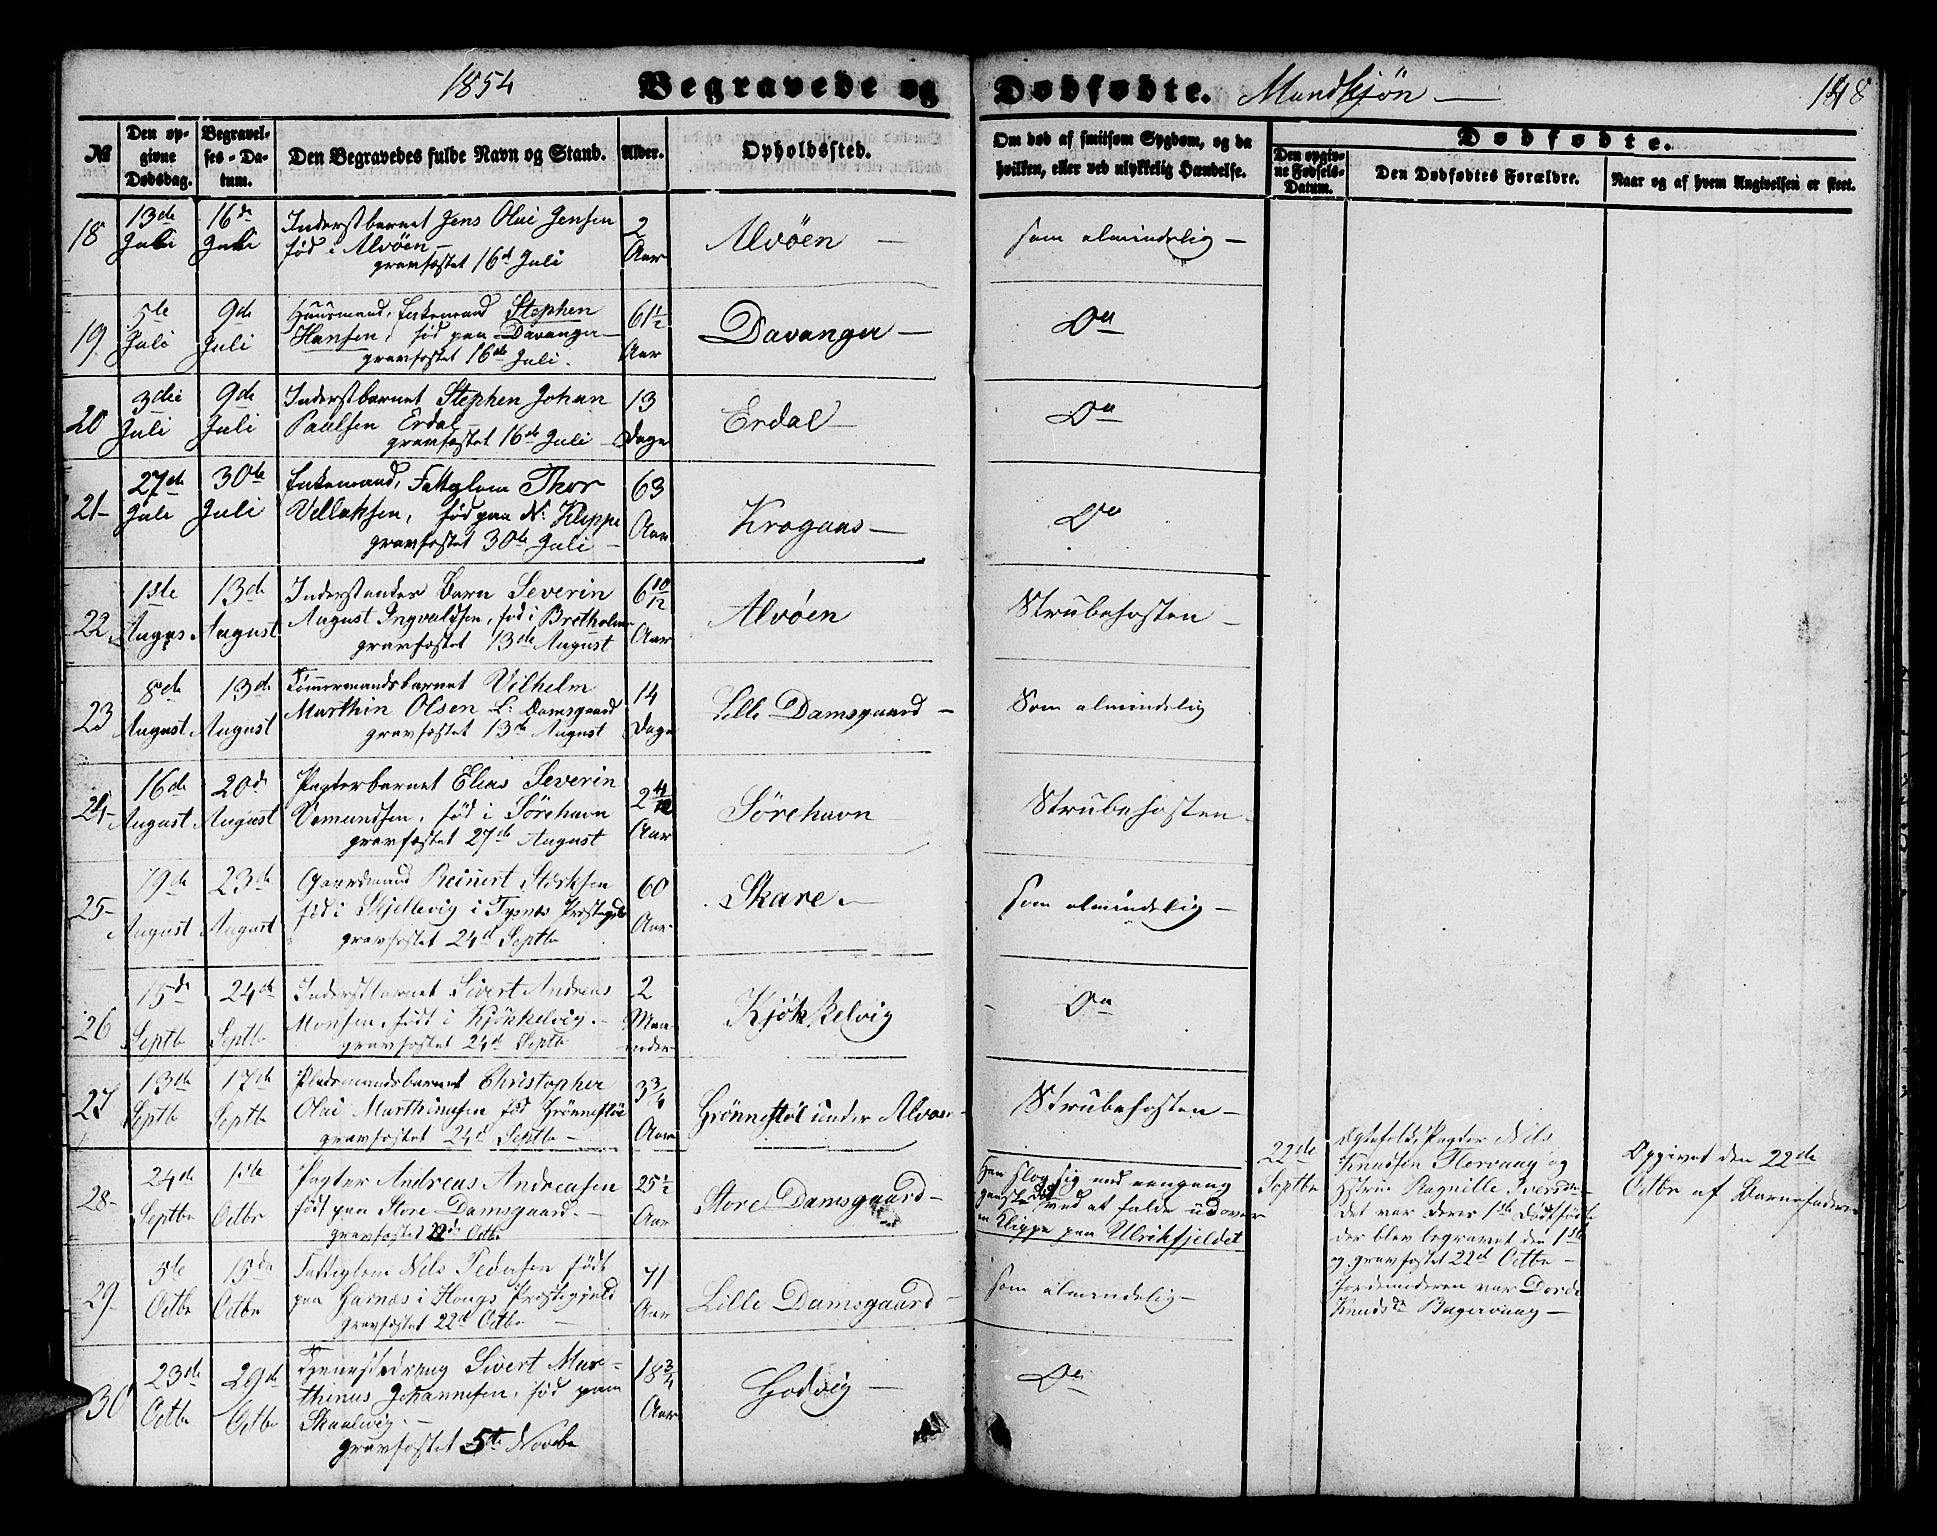 1854 Begravede og Dødfødte. Mandkjøn — 148
№
Den opgivne Dødsdag.
Begravelses-Datum.
Den Begravedes fulde Navn og Stand.
Alder.
Opholdssted.
Om død af smitsom Sygdom, og da hvilken, eller ved ulykkelig Hændelse.
Dødfødte.
Den opgivne Fødsels-Datum.
Den Dødfødtes Forældre.
Naar og af hvem Angivelsen er skeet.
18 13de Juli 16de Juli
Inderstbarnet Jens Olai Jensen
født i Alvøen —
gravfæstet 16de Juli
2 Aar
Alvøen —
som almindelig —
19 5te Juli 9de Juli
Huusmand, Enkemand Stephen
Hansen, fød paa Davanger —
gravfæstet 16de Juli.
61½ Aar
Davanger —
Do
20 3die Juli 9de Juli
Inderstbarnet Stephen Johan
Paulsen Erdal —
gravfæstet 16de Juli —
13 Dage
Erdal —
Do
21 27de Juli 30te Juli
Enkemand, Fattiglem Thor
Villaksen, fød paa N: Kleppe
gravfæstet 30te Juli —
63 Aar
Krogaas —
Do
22 1ste August 13de August
Inderstandes Barn Severin
August Ingvaldsen, fød i Bretholm
gravfæstet 13de August
6 10/12 Aar
Alvøen
Strubehosten —
23 8de August 13de August
Tømmermandsbarnet Vilhelm
Marthin Olsen L: Damsgaard
gravfæstet 13de August
14 Dage
Lille Damsgaard —
Som almindelig
24 16de August 20de August
Pagterbarnet Elias Severin
Vemundsen, fød i Sørehavn
gravfæstet 27de August
2 4/12 Aar
Sørehavn
Strubehosten.
25 19de August 23de August
Gaardmand Reinert Störksen
fød i Skjellevig i Tysnes Præstegjeld
gravfæstet 24de Septbr
60 Aar
Skare. —
som almindelig —
26 15de Septbr 24de Septbr
Inderstbarnet Sivert Andreas
Monsen, født i Kjøkkelvig. —
gravfæstet 24de Septbr
2 Maaneder
Kjøkkelvig
Do
27 13de Septbr 17de Septbr
Pladsmandsbarnet Christopher
Olai Marthinusen fød Grönnestöl
gravfæstet 24de Septbr —
3¾ Aar
Grönnestöl under Alvøen —
Strubehosten —
28 24de Septbr 1ste Octbr
Pagter Andreas Andreasen
født paa Store Damsgaard. —
gravfæstet 22de Octbr
25½ Aar
Store Damsgaard —
Han slog sig med eengang
ved at falde udover
en Klippe paa Ulrikfjeldet
22de Septbr
Ægtefolk, Pagter Nils
Knudsen Florvaag og
Hstru Ragnille Iversd: —
det var deres 1ste Dødfødte
der blev begravet den 1ste
og gravfæstet 22de Octbr —
Jordemoderen var Dorde
Knudsd: Bagervaag —
Opgivet den 22de
Octbr af Barnefaderen
29 5te Octbr 15de Octbr
Fattiglem Nils Pedersen født
paa Garnæs i Hougs Præstegjeld
gravfæstet 22de Octbr —
71 Aar
Lille Damsgaard —
som almindelig —
30 23de Octbr 29de Octbr
Tjenestedreng Sivert Mar-
thinus Johannesen, fød paa
Skaalvig. —
gravfæstet 5te Novbr
18¾ Aar
Godvig —
Do